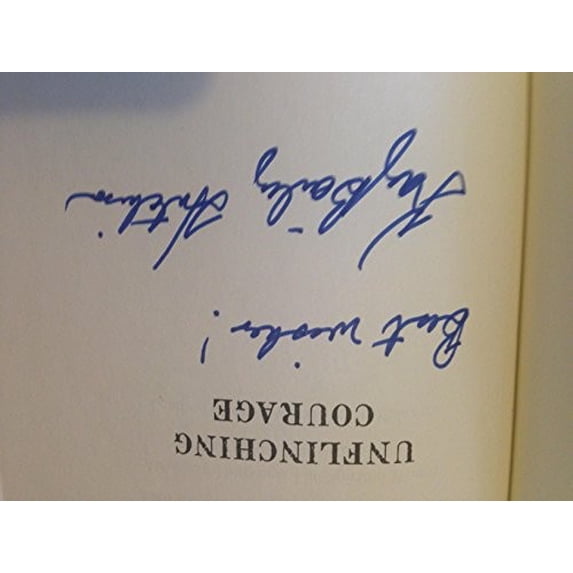 UNFLINCHING
COURAGE
Best wishes!
Kay Bailey Hutchison